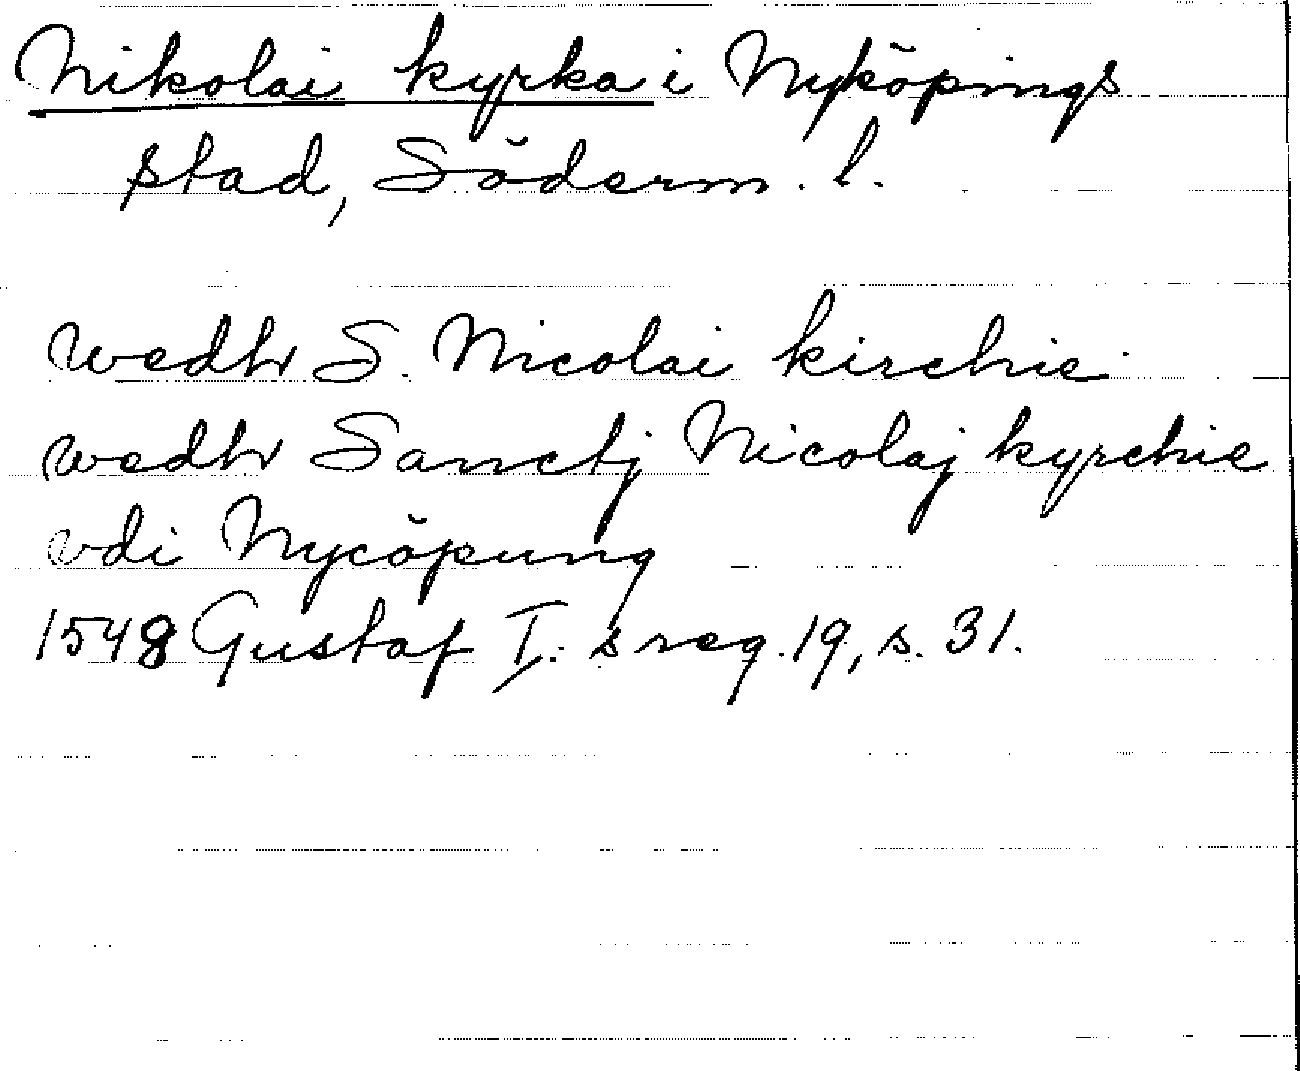 Nikolai kyrka i Nyköpings
stad, Söderm. l.
wedhr S. Nicolai kirchie
wedhr Sanctj Nicolaj kyrchie
vdi Nycöpung
1548 Gustaf I:s reg. 19, s. 31.